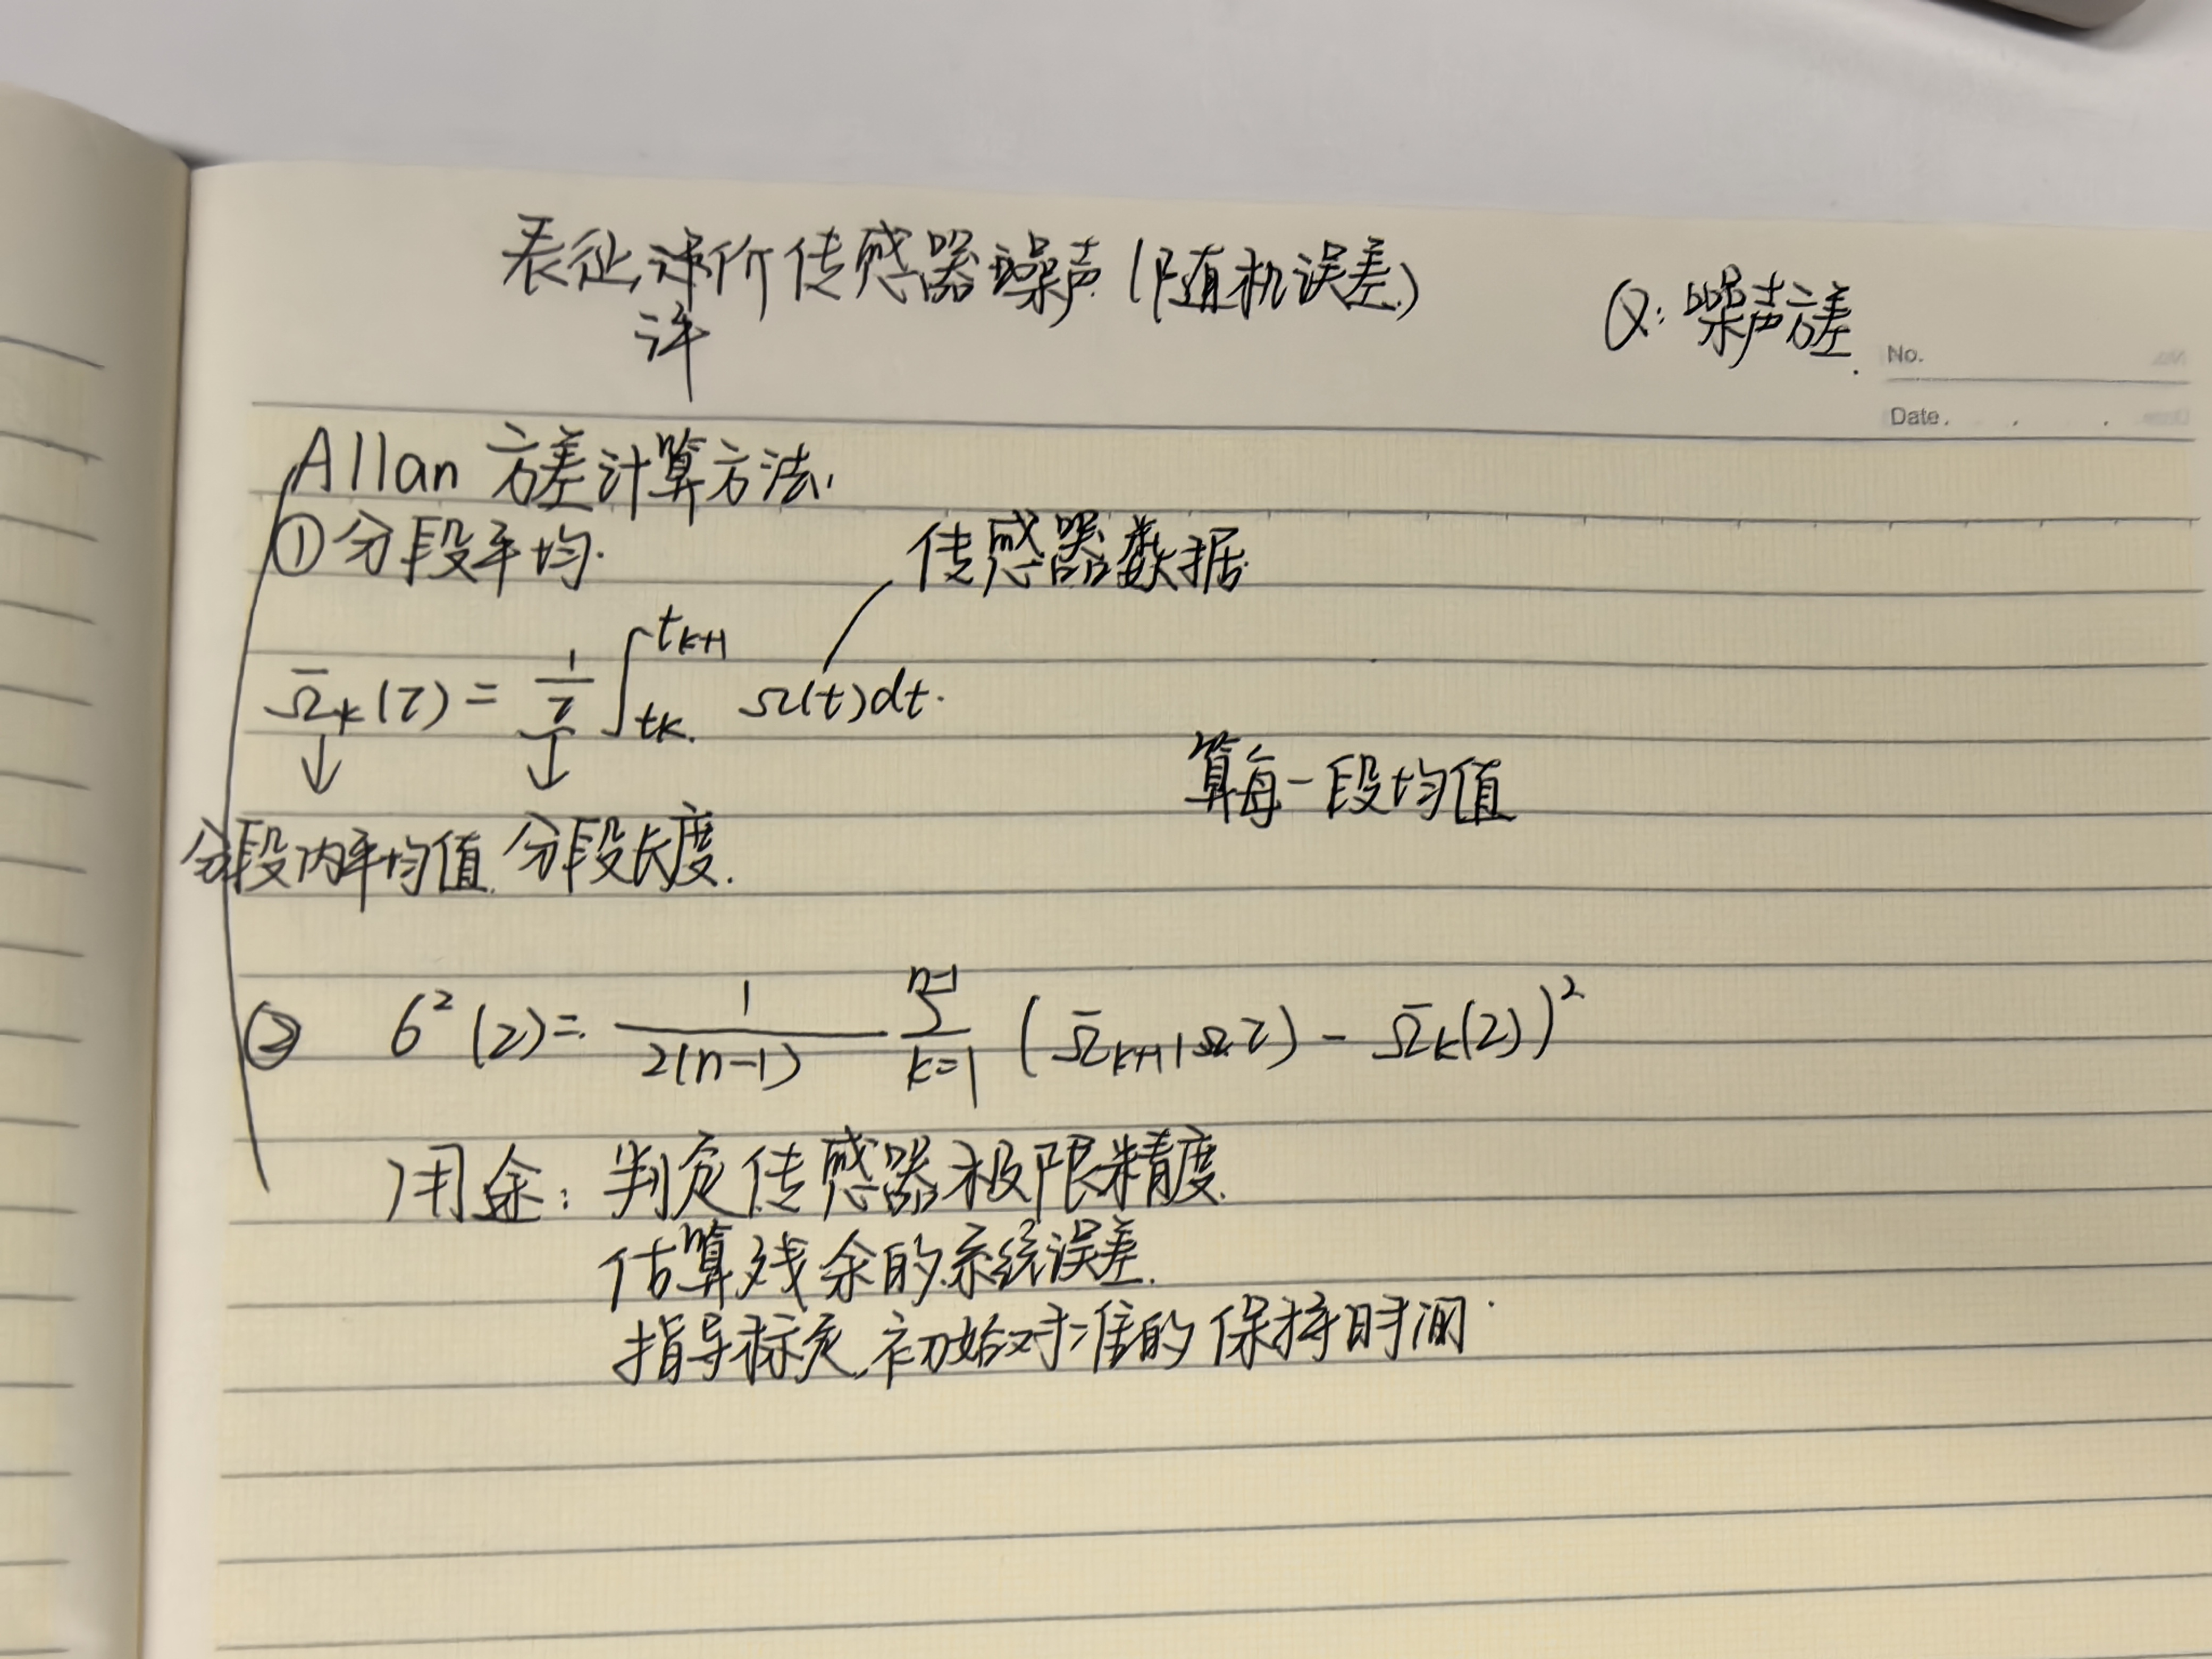 表征评价传感器噪声(随机误差)
评
Q: 噪声方差.
No.
Date. . .
Allan 方差计算方法.
①分段平均.
传感器数据.
Ω̄ₖ(τ) = 1/τ ∫_{tₖ}^{tₖ₊₁} Ω(t)dt.
算每一段均值
分段内平均值. 分段长度.
② 6²(τ) = 1/(2(n-1)) Σ_{k=1}^{n-1} (Ω̄ₖ₊₁(τ) - Ω̄ₖ(τ))²
用途: 判定传感器极限精度.
估算残余的系统误差.
指导标定,初始对准的保持时间.